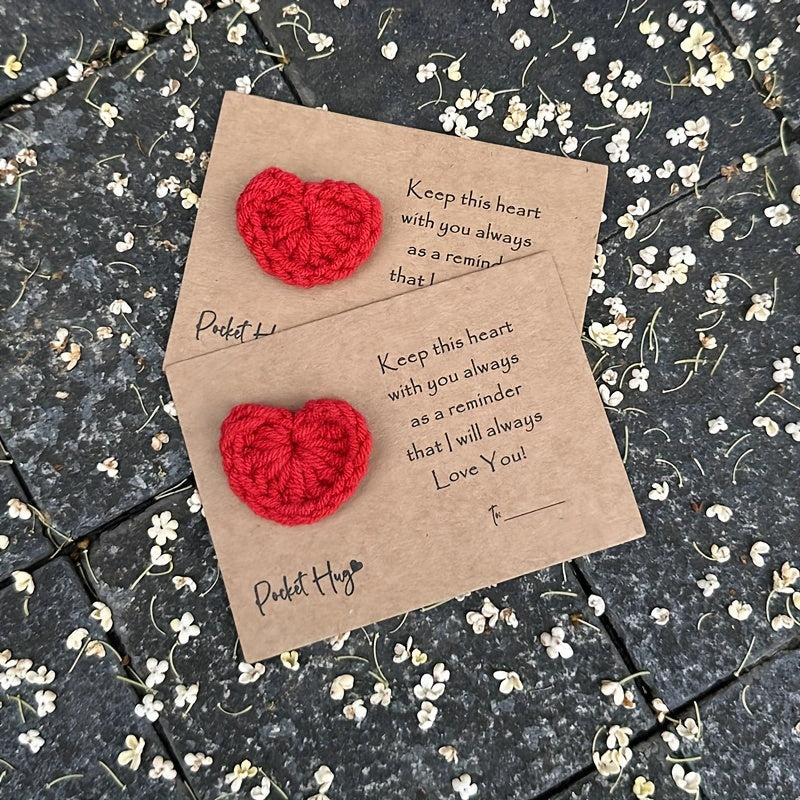 Keep this heart
with you always
as a
that
Pocket
Keep this heart
with you always
as a reminder
that I will always
Love You!
To:
Pocket Hug